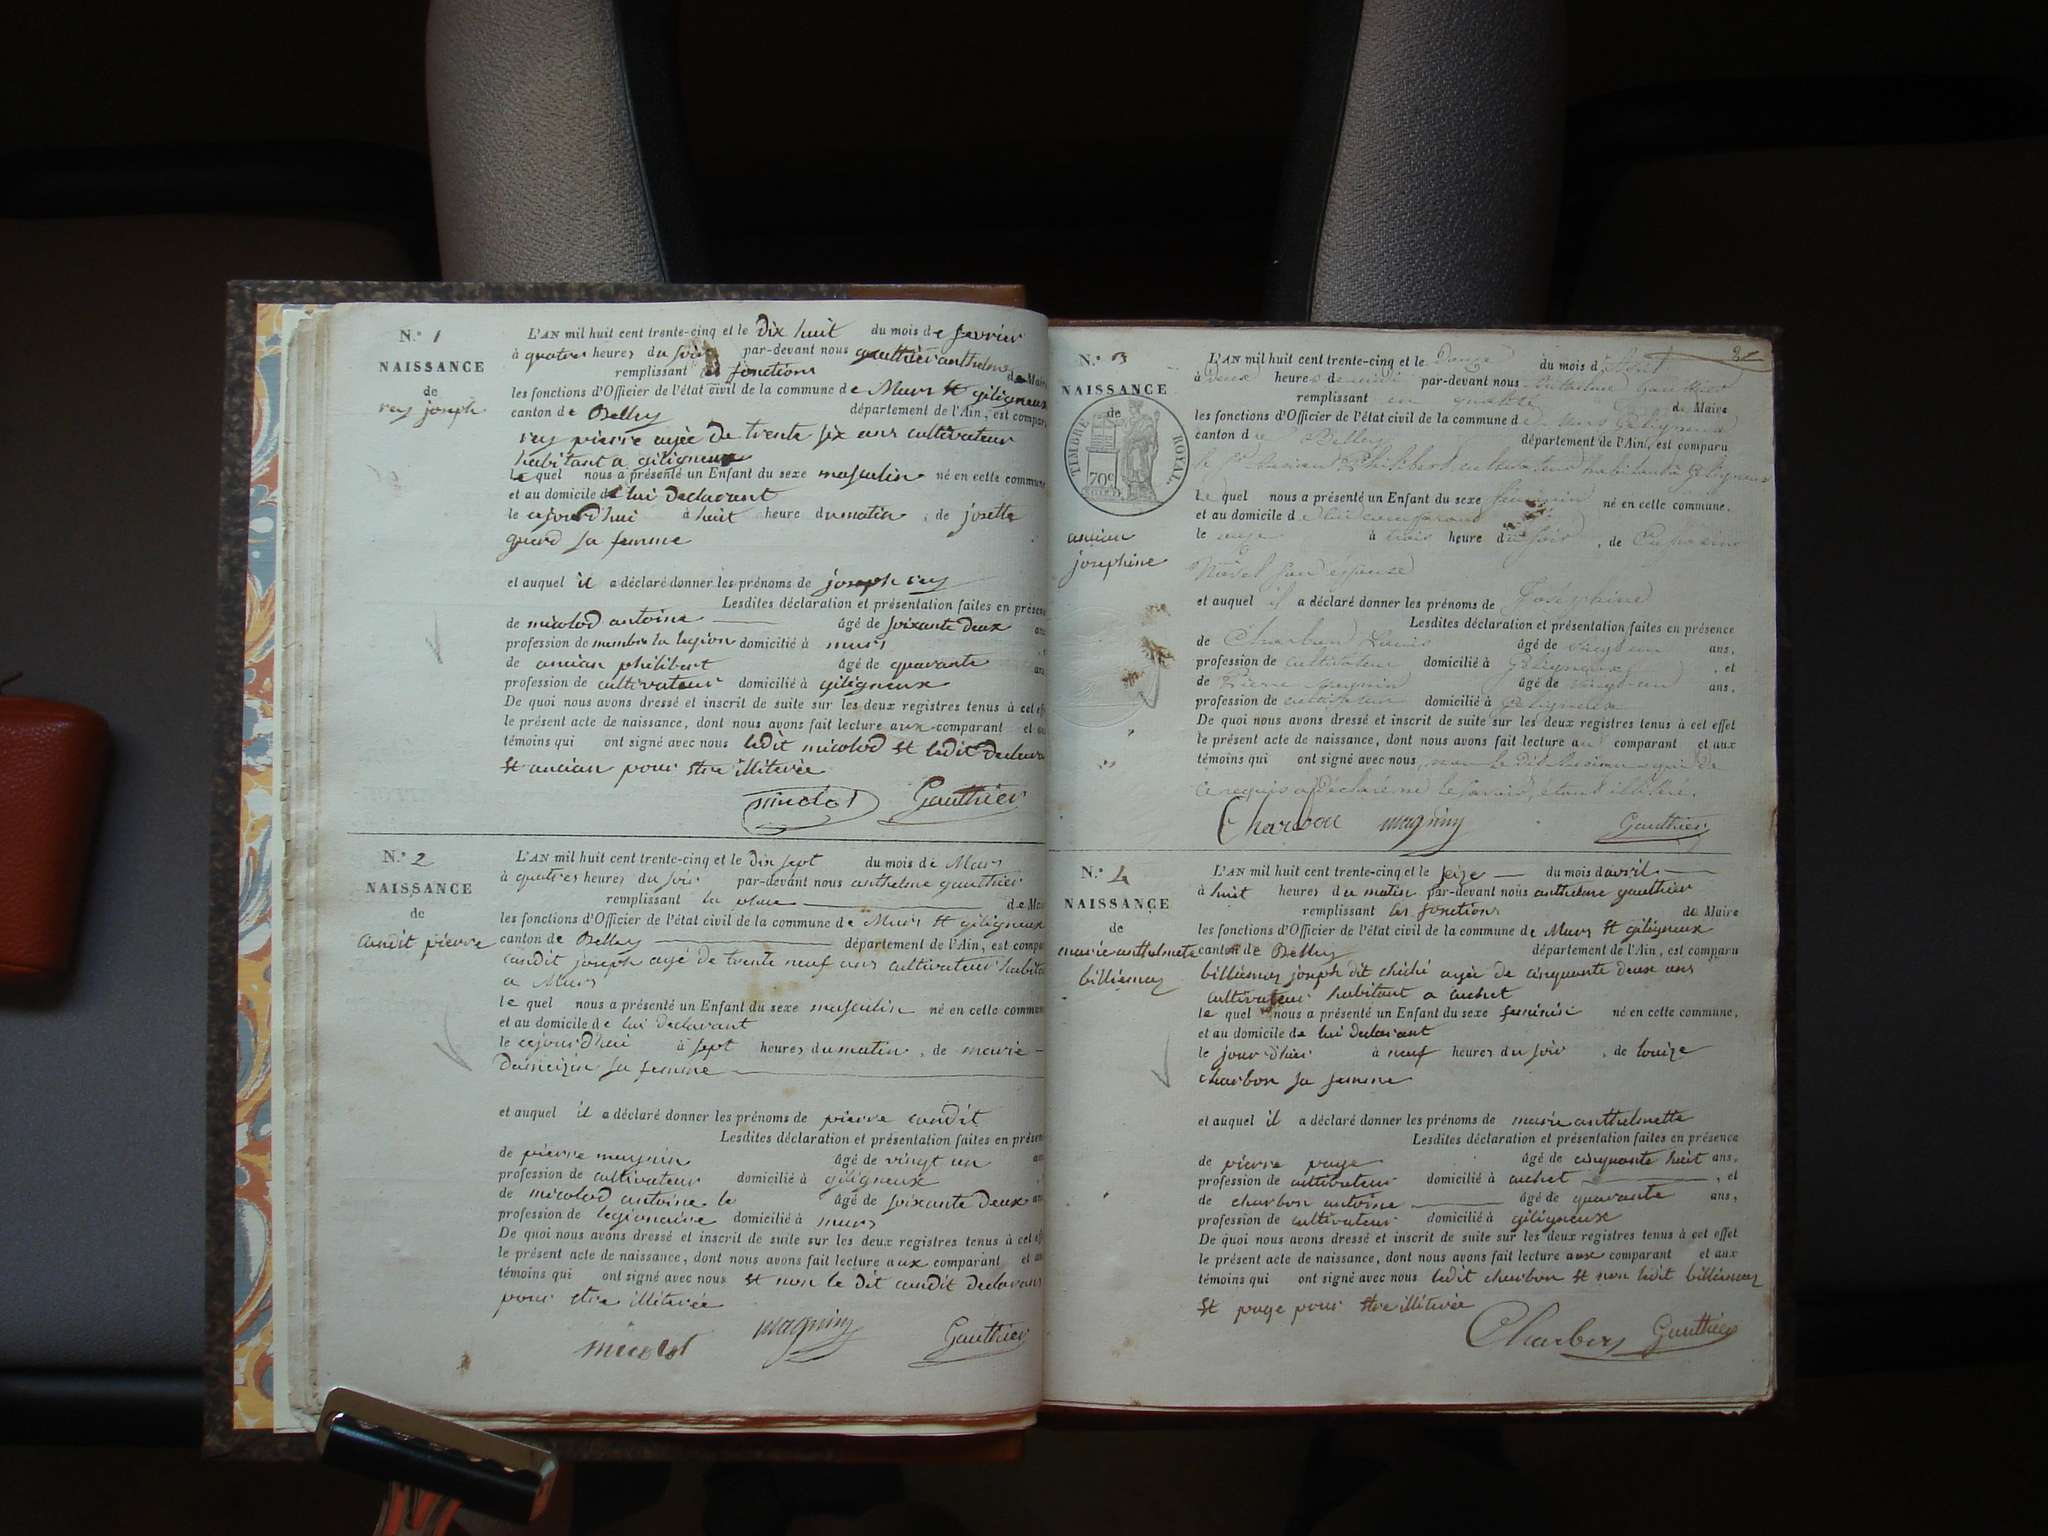 N.° 1
NAISSANCE
de
rey joseph
L'AN mil huit cent trente-cinq et le dix huit du mois de fevrier
à quatres heures du soir par-devant nous gauthier anthelme
remplissant les fonctions de Maire
les fonctions d'Officier de l'état civil de la commune de Murs et giligneux
canton de Belley département de l'Ain, est comparu
rey pierre agée de trente six ans cultivateur
habitant a giligneux
Le quel nous a présenté un Enfant du sexe masculin né en cette commune
et au domicile de lui declarant
le cejourd'hui à huit heure du matin , de josette
sa femme
et auquel il a déclaré donner les prénoms de joseph rey
Lesdites déclaration et présentation faites en présence
de micolod antoine âgé de soixante deux ans
profession de membre la legion domicilié à murs
de ancian philibert âgé de quarante ans
profession de cultivateur domicilié à giligneux
De quoi nous avons dressé et inscrit de suite sur les deux registres tenus à cet effet
le présent acte de naissance, dont nous avons fait lecture aux comparant et aux
témoins qui ont signé avec nous ledit micolod et ledit
et ancian pour etre illiterée
micolot Gauthier
N.° 2
NAISSANCE
de
candit pierre
L'AN mil huit cent trente-cinq et le dix sept du mois de Mars
à quatres heures du soir par-devant nous anthelme gauthier
remplissant la place de Maire
les fonctions d'Officier de l'état civil de la commune de Murs et giligneux
canton de Belley département de l'Ain, est comparu
candit joseph agé de trente neuf ans cultivateur
a Murs
le quel nous a présenté un Enfant du sexe masculin né en cette commune
et au domicile de lui declarant
le cejourd'hui à sept heures du matin , de marie
sa femme
et auquel il a déclaré donner les prénoms de pierre candit
Lesdites déclaration et présentation faites en présence
de pierre magnin âgé de vingt un ans
profession de cultivateur domicilié à giligneux
de micolod antoine le âgé de soixante deux ans
profession de legionaire domicilié à murs
De quoi nous avons dressé et inscrit de suite sur les deux registres tenus à cet effet
le présent acte de naissance, dont nous avons fait lecture aux comparant et aux
témoins qui ont signé avec nous et non le dit candit declarant
pour etre illiterée
micolot magnin Gauthier
N.° 3
NAISSANCE
de
TIMBRE ROYAL
70c
ancian
josephine
L'AN mil huit cent trente-cinq et le du mois d'
à heures de par-devant nous Anthelme Gauthier
remplissant en qualité de Maire
les fonctions d'Officier de l'état civil de la commune de Murs Géligneux
canton de Belley département de l'Ain, est comparu
Philibert, cultivateur habitant à Géligneux
Le quel nous a présenté un Enfant du sexe féminin né en cette commune.
et au domicile de
le à trois heure du soir , de
son épouse
et auquel il a déclaré donner les prénoms de Josephine
Lesdites déclaration et présentation faites en présence
de Charbon âgé de ans,
profession de cultivateur domicilié à Géligneux , et
de Pierre Magnin âgé de vingt un ans,
profession de cultivateur domicilié à Géligneux
De quoi nous avons dressé et inscrit de suite sur les deux registres tenus à cet effet
le présent acte de naissance, dont nous avons fait lecture au comparant et aux
témoins qui ont signé avec nous, non le dit Ancian qui de
ce requis a déclaré ne le savoir, étant illitéré.
Charbon magnin Gauthier
N.° 4
NAISSANCE
de
marie anthelmette
billiemaz
L'AN mil huit cent trente-cinq et le seize du mois d'avril
à huit heures du matin par-devant nous anthelme gauthier
remplissant les fonctions de Maire
les fonctions d'Officier de l'état civil de la commune de Murs et giligneux
canton de Belley département de l'Ain, est comparu
billiemaz joseph dit chiché agée de cinquante deux ans
cultivateur habitant a luchet
le quel nous a présenté un Enfant du sexe feminin né en cette commune,
et au domicile de lui declarant
le jour d'hier à neuf heures du soir , de louize
charbon sa femme
et auquel il a déclaré donner les prénoms de marie anthelmette
Lesdites déclaration et présentation faites en présence
de pierre page âgé de cinquante huit ans,
profession de cultivateur domicilié à , et
de charbon antoine âgé de quarante ans,
profession de cultivateur domicilié à giligneux
De quoi nous avons dressé et inscrit de suite sur les deux registres tenus à cet effet
le présent acte de naissance, dont nous avons fait lecture aux comparant et aux
témoins qui ont signé avec nous ledit charbon et non ledit billiemaz
et page pour etre illiterée
Charbon Gauthier